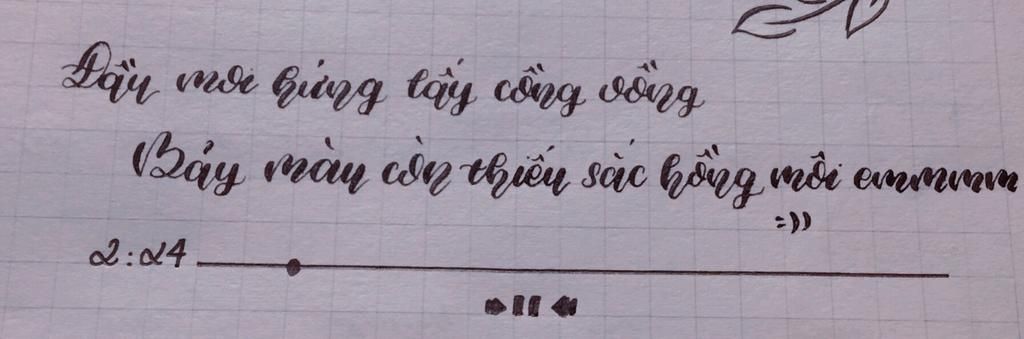 Dầu mơi hứng lấy cồng vồng
Bảy màu còn thiếu sắc hồng môi emmmm
=))
2:24